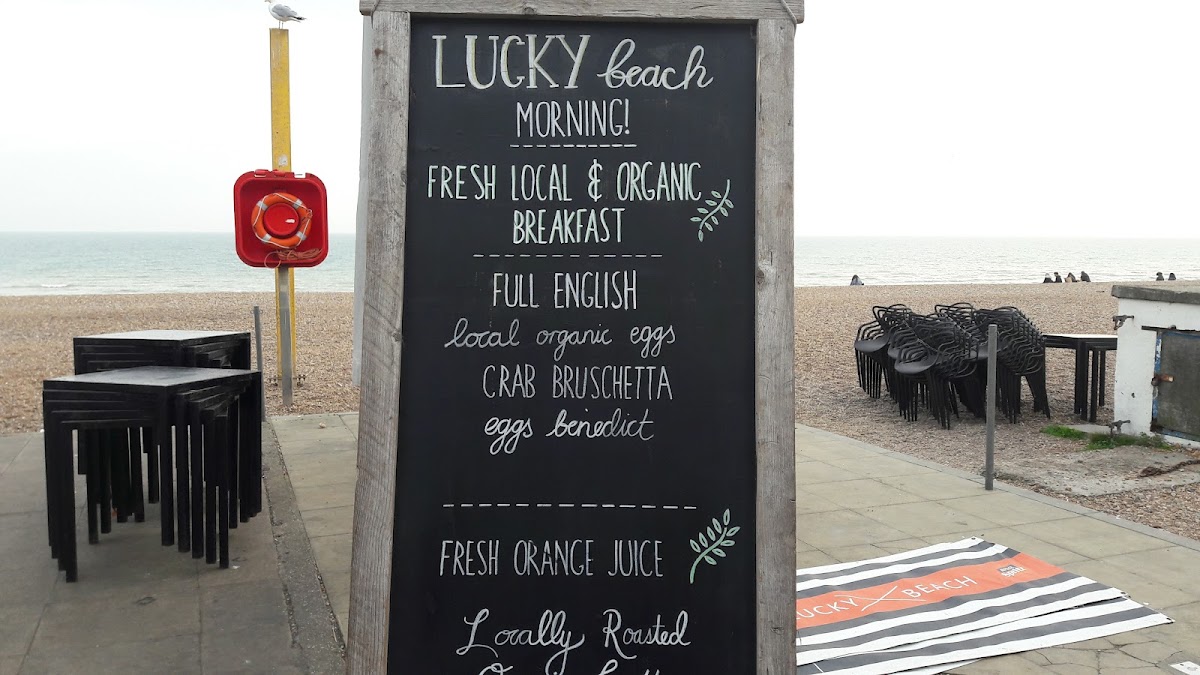 LUCKY beach
MORNING!
FRESH LOCAL & ORGANIC
BREAKFAST
FULL ENGLISH
local organic eggs
CRAB BRUSCHETTA
eggs benedict
FRESH ORANGE JUICE
Locally Roasted
LUCKY BEACH